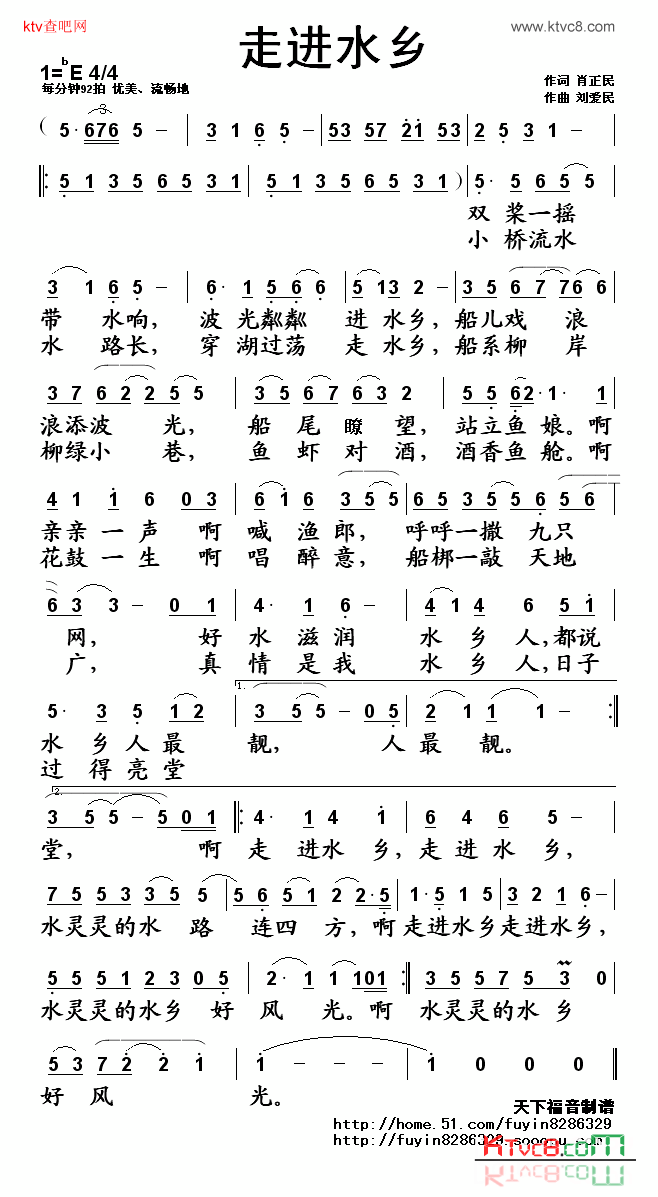 ktv查吧网
www.ktvc8.com
走进水乡
1=♭E 4/4
每分钟92拍 优美、流畅地
作词 肖正民
作曲 刘爱民
(5·676 5 - | 3 1 6 5 - | 53 57 21 53 | 2 5 3 1 -
‖: 5 1 3 5 6 5 3 1 | 5 1 3 5 6 5 3 1) 5· 5 6 5 5
双 桨一摇
小 桥流水
3 1 6 5 - | 6· 1 5 6 6 | 5 13 2 - | 3 5 6 7 7 6 6
带 水响，波 光粼粼 进 水乡，船儿戏 浪
水 路长，穿 湖过荡 走 水乡，船系柳 岸
3 7 6 2 2 5 5 | 3 5 6 7 6 3 2 | 5 5 6 2·1· 1
浪添波 光，船 尾 瞭 望，站立鱼 娘。啊
柳绿小 巷，鱼 虾 对 酒，酒香鱼 舱。啊
4 1 1 6 0 3 | 6 1 6 3 5 5 | 6 5 3 5 5 6 5 6
亲亲 一 声 啊 喊 渔 郎，呼呼一撒 九只
花鼓 一 生 啊 唱 醉 意，船梆一敲 天地
6 3 3 - 0 1 | 4· 1 6 - | 4 1 4 6 5 1
网，好 水 滋 润 水 乡 人，都说
广，真 情 是 我 水 乡 人，日子
5· 3 5 1 2 | 1. 3 5 5 - 0 5 | 2 1 1 1 - :‖
水 乡 人 最 靓，人 最 靓。
过 得 亮 堂
2. 3 5 5 - 5 0 1 ‖: 4· 1 4 1 | 6 4 6 5
堂，啊 走 进水 乡，走 进 水 乡，
7 5 5 3 5 5 | 5 6 5 1 2 2·5 | 1·5 1 5 | 3 2 1 6 -
水灵灵的水 路 连四 方，啊走进水乡走进水乡，
5 5 5 1 2 3 0 5 | 2· 1 1 101 :‖ 3 5 5 7 5 3 0
水灵灵的水乡 好 风 光。啊 水灵灵的水 乡
5 3 7 2 2 1 | 1 - - - | 1 0 0 0 ‖
好 风 光。
天下福音制谱
http://home.51.com/fuyin8286329
http://fuyin8286329
KTvc8.com